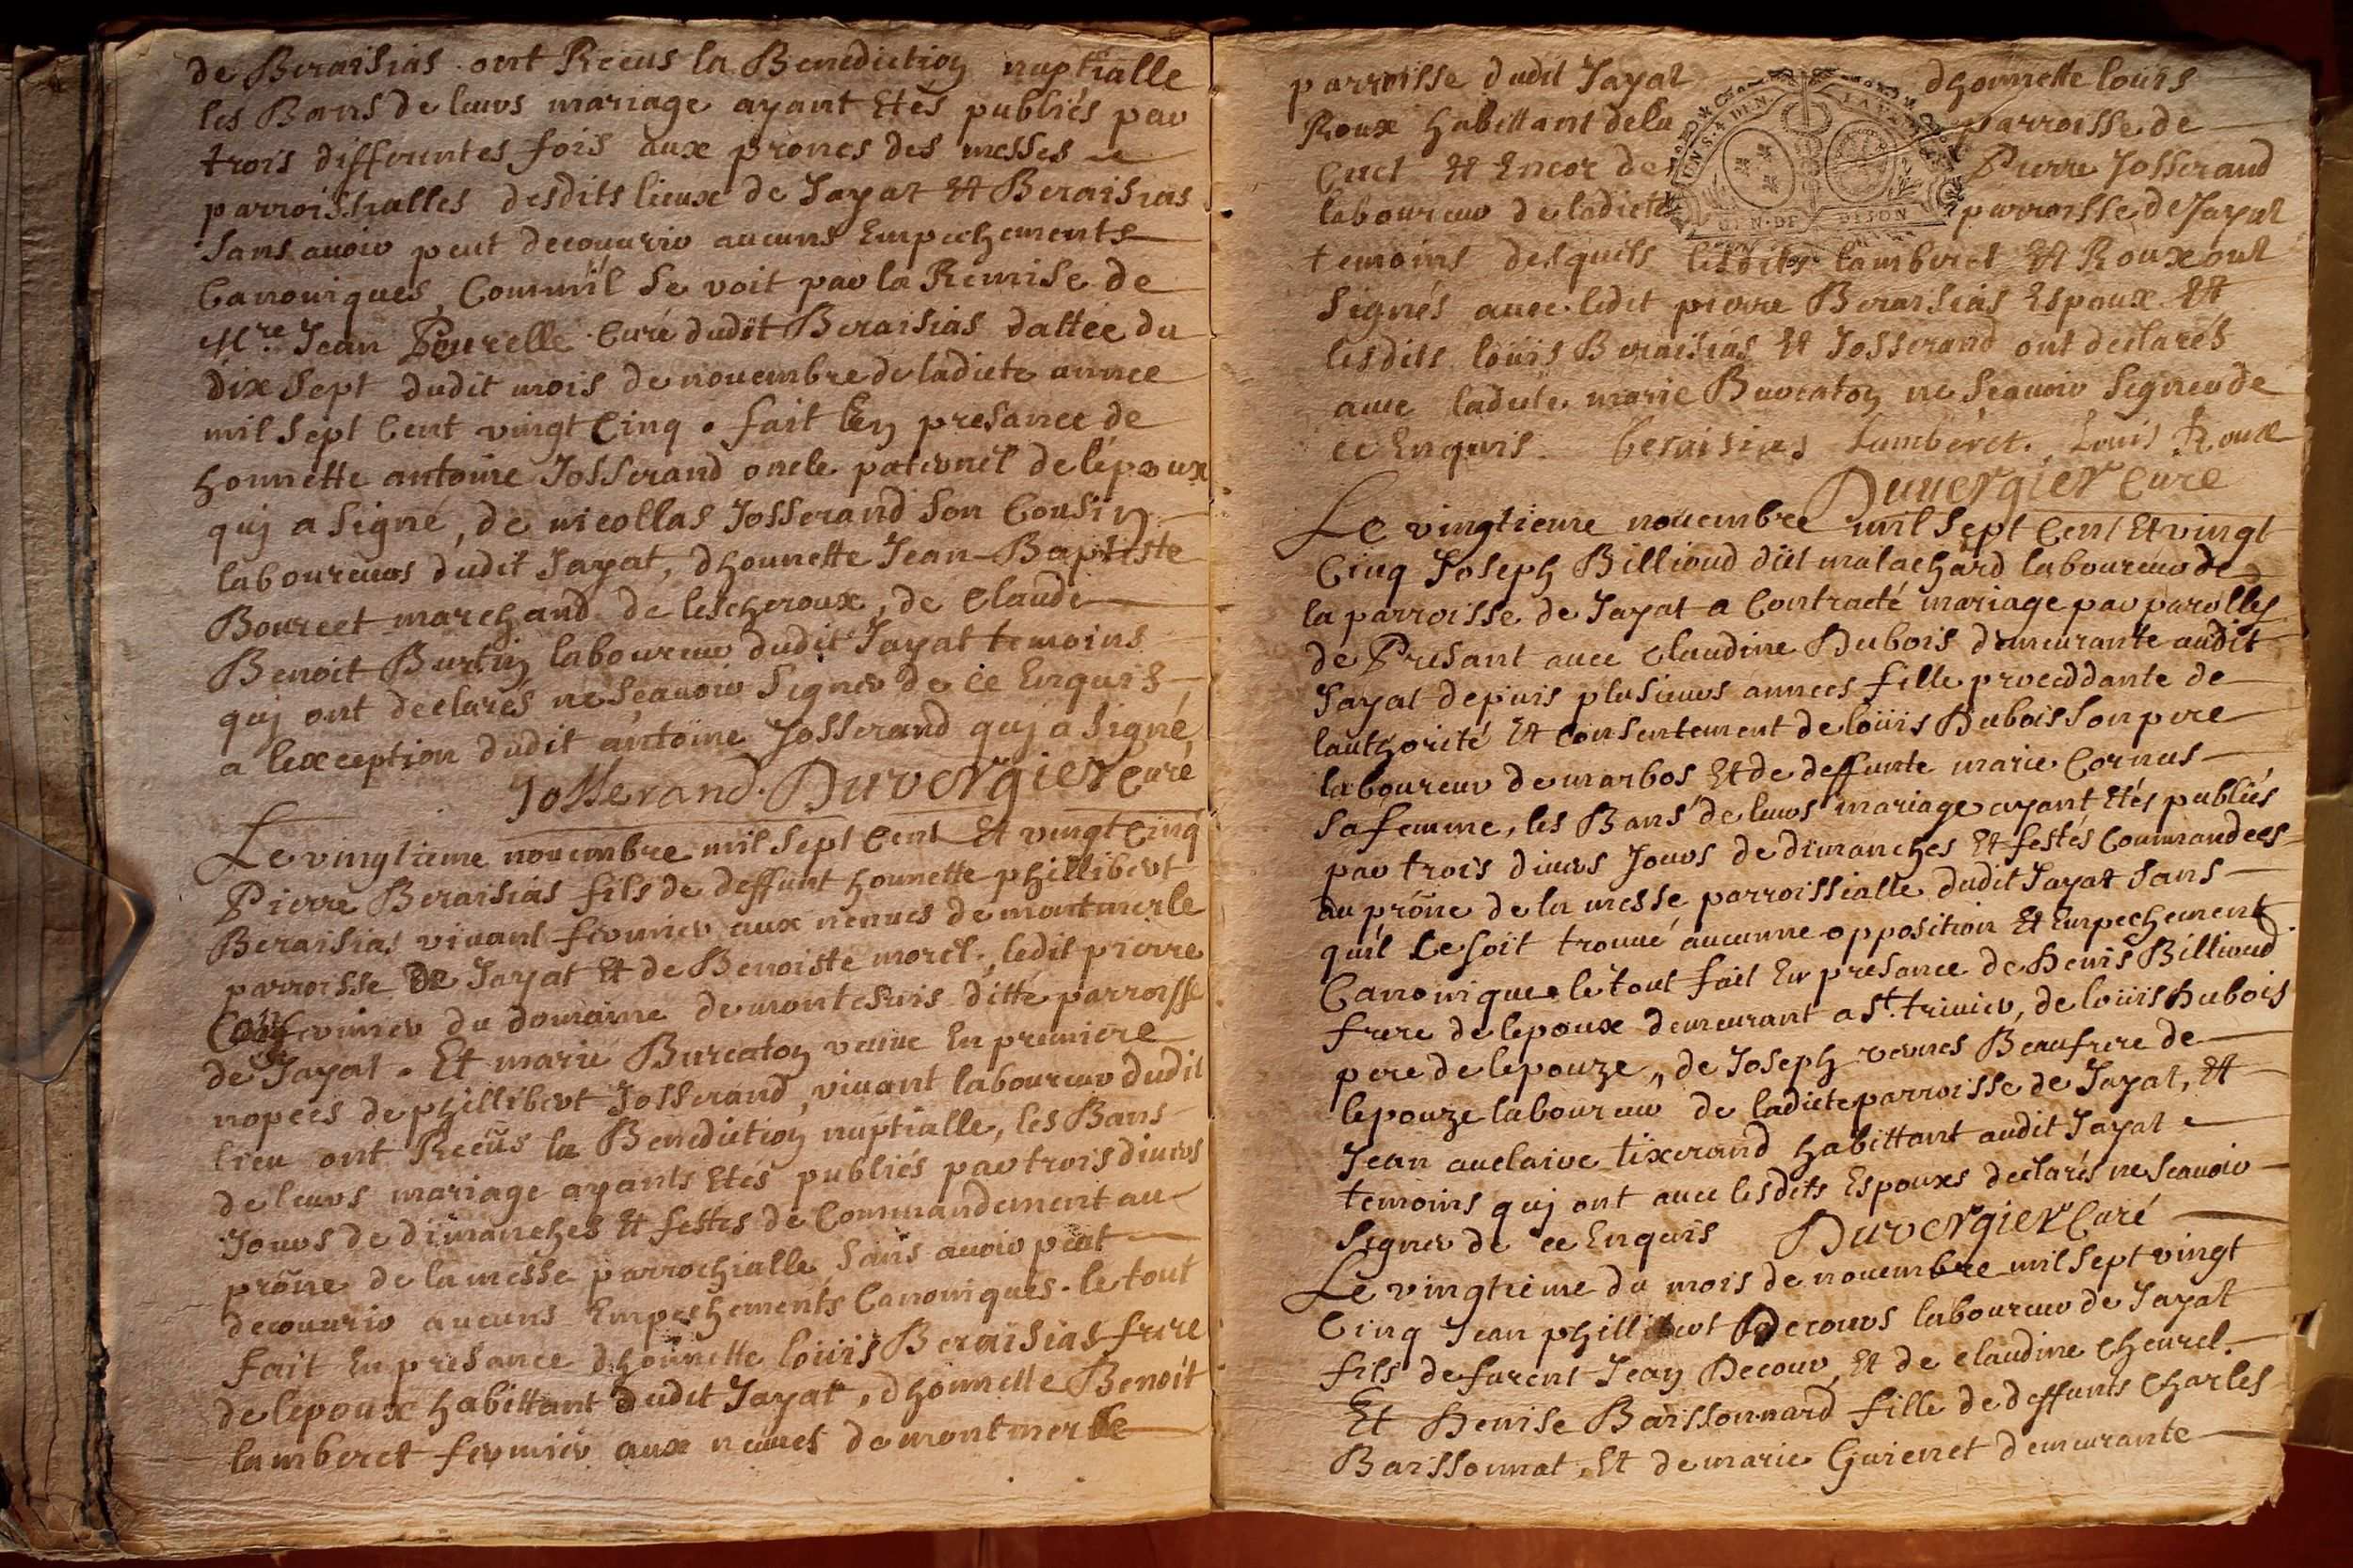 de Beraisias ont Receus la Benediction nuptialle
les Bans de leurs mariage ayant Etés publiés par
trois differentes fois aux prones des messes
parroissialles desdits lieux de Jayat Et Beraisias
sans avoir peut decouurir aucuns Empechements
Canoniques, Comm'il se voit par la Remise de
Mre Jean Curé dudit Beraisias dattée du
dix sept dudit mois de nouembre de ladicte annee
mil sept Cent vingt Cinq . fait En presance de
honnette antoine Josserand oncle paternel de lépoux
quj a signé, de nicollas Josserand son Cousin
laboureurs dudit Jayat, dhonnette Jean Baptiste
Bourcet marchand de lescheroux, de Claude
Benoit Burtin laboureur dudit Jayat temoins
quj ont declarés ne sçauoir signer de ce Enquis,
a lexception dudit antoine Josserand quj a signé,
Josserand. Duvergier Curé
Le vingtieme nouembre mil sept Cent Et vingt Cinq
Pierre Beraisias fils de deffunt honnette phillibert
Beraisias viuant fermier aux nenues de montmerle
parroisse de Jayat Et de Benoiste morel, ledit pierre
du domaine de montesuis ditte parroisse
de Jayat . Et marie Burcaton veuue En premiere
nopces de phillibert Josserand, viuant laboureur dudit
lieu ont Receüs la Benediction nuptialle, les Bans
de leurs mariage ayants Etés publiés par trois diuers
Jours de dimanches Et festes de Commandement au
prône de la messe parrochialle, sans auoir peut
decouurir aucuns Empeshements Canoniques . le tout
fait En presance dhonnette loüis Beraisias frere
de lepoux habittant dudit Jayat, dhonnette Benoit
lamberet fermier aux neuues de montmerle
parroisse dudit Jayat dhonnette loüis
Roux habittant de la parroisse de
Cuet Et Encor de Pierre Josserand
laboureur de ladicte parroisse de Jayat
temoins desquels lesdits lamberet Et Roux ont
signés auec ledit pierre Beraisias Espoux Et
lesdits loüis Beraisias Et Josserand ont declarés
auec ladicte marie Burcaton ne sçauoir signer de
ce Enquis. beraisias Lamberet. Louis Roux
Duuergier Curé
Le vingtieme nouembre mil sept Cent Et vingt
Cinq Joseph Billioud dit malachard laboureur de
la parroisse de Jayat a Contracté mariage par parolles
de Presant auec Claudine Dubois demeurante audit
Jayat depuis plusieurs annees fille proceddante de
lauthorité Et Consentement de loüis Dubois son pere
laboureur de marbos Et de deffunte marie Cornus
sa femme, les Bans de leurs mariage ayant Etés publiés
par trois diuers Jours de dimanches Et festes Commandees
au prône de la messe parroissialle dudit Jayat sans
qu'il se soit trouué aucunne opposition Et Empechement
Canonique. le tout fait En presance de Denis Billioud
frere de lepoux demeurant a St. triuier, de loüis Dubois
pere de lepouze, de Joseph vernes Beaufrere de
lepouze laboureur de ladicte parroisse de Jayat, Et
Jean auclaire tixerand habittant audit Jayat
temoins quj ont auec lesdits Espouxs declarés ne sçauoir
signer de ce Enquis Duvergier Curé
Le vingtieme du mois de nouembre mil sept vingt
Cinq Jean phillibert Decours laboureur de Jayat
fils de furent Jean Decour, Et de Claudine Cheurel.
Et Denise Baissonnard fille de deffunts Charles
Baissonnat, Et de marie Guienet demeurante
GEN. DE DIJON